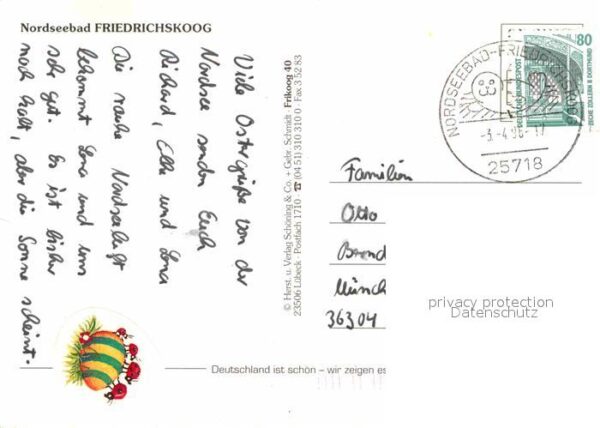 Nordseebad FRIEDRICHSKOOG
Viele Ostergrüße von der
Nordsee senden Euch
Richard, Elke und Lena
Die rauhe Nordseeluft
bekommt Lena und uns
sehr gut. Es ist bisher
noch kalt, aber die Sonne scheint.
© Herst. u. Verlag Schöning & Co. + Gebr. Schmidt · Frikoog 40
23506 Lübeck · Postfach 1710 · ☎ (04 51) 310 310 0 · Fax 3 52 83
80
DEUTSCHE BUNDESPOST
ZECHE ZOLLERN II DORTMUND
NORDSEEBAD-FRIEDRICHSKOOG
25718
Familien
Otto
Münch
36304
privacy protection
Datenschutz
Deutschland ist schön – wir zeigen es